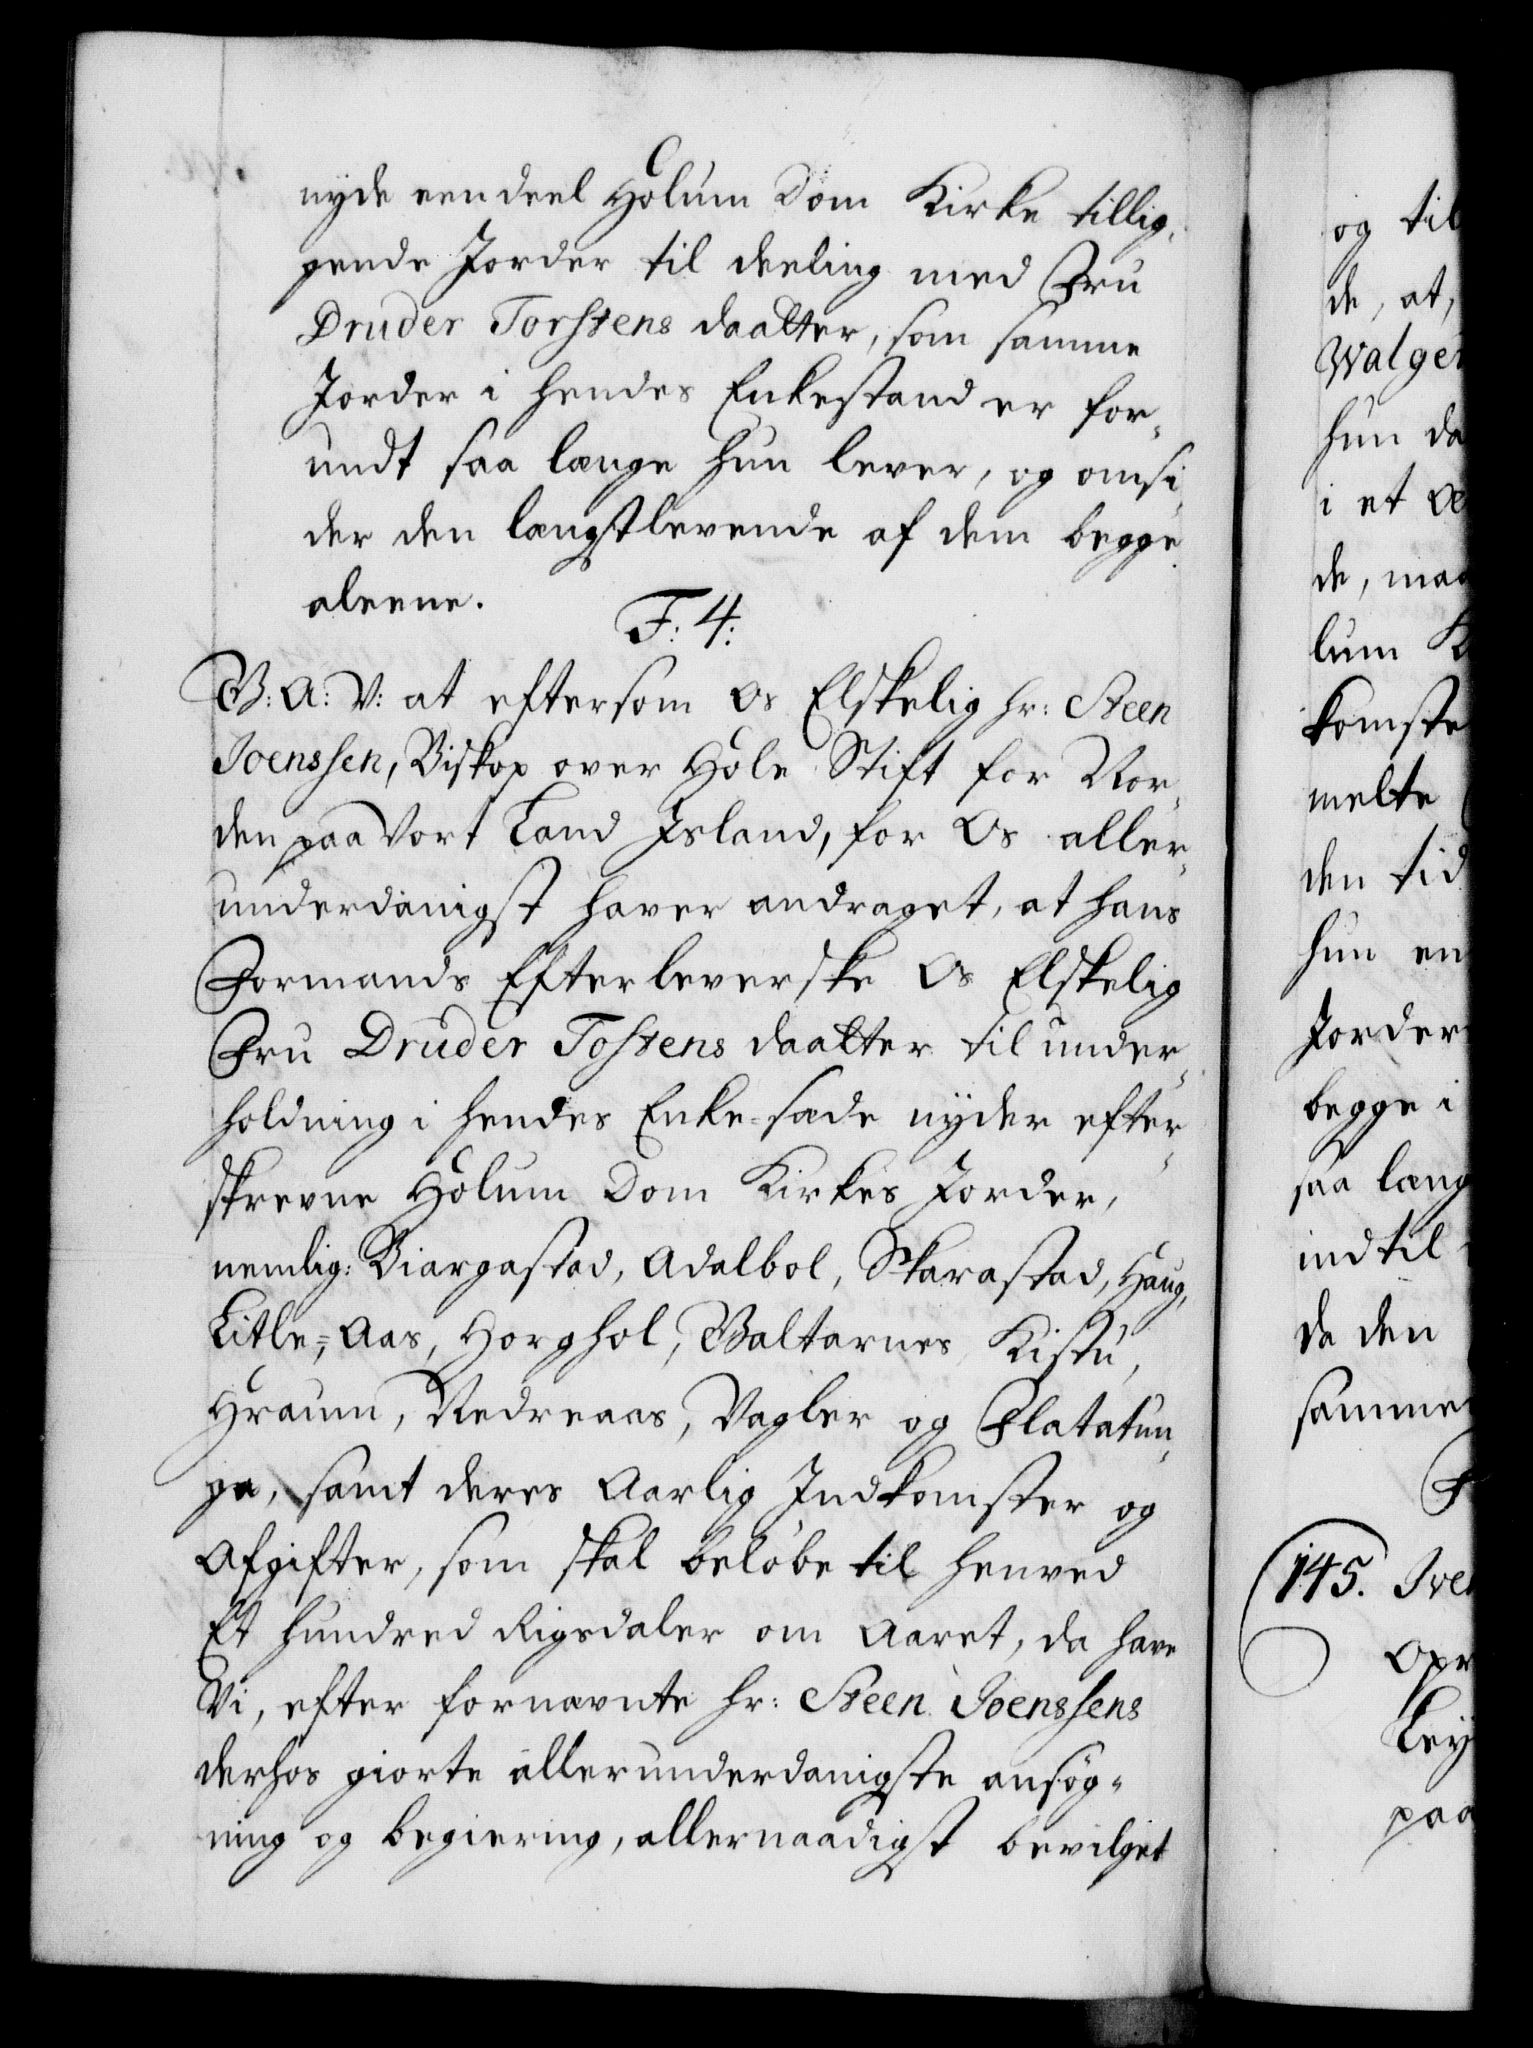 nyde een deel Holum Dom Kirke tillig-
gende Jorder til deeling med Fru
Druder Torstens daatter, som samme
Jorder i hendes Enkestand er for-
undt saa længe hun lever, og omsi-
der den længstlevende af dem begge
aleene.
F: 4:
V: A: V: at eftersom Os Elskelig hr: Steen
Joenssen, Biskop over Hole Stift for Nor-
den paa Vort Land Island, for Os aller-
underdánigst haver andraget, at hans
Formands Efterleverske Os Elskelig
Fru Druder Tostens daatter til under-
holdning i hendes Enke-sæde nyder efter-
skrevne Holum Dom Kirkes Jorder,
nemlig: Biargastad, Adalbol, Skarastad, Haug,
Litle-Aas, Horghol, Valtarnes Kistu,
Hraunn, Nedreaas, Vagler og Flatatun-
ga, samt deres Aarlig Indkomster og
Afgifter, som skal beløbe til henved
Et hundred Rigsdaler om Aaret, da have
Vi, efter fornævnte hr: Steen Joenssens
derhos giorte allerunderdanigste ansøg-
ning og begiering, allernaadigst bevilget
og til
de, at,
Walger
hun da
i et
de, maa
lum K
komste
melte
den tid
hun en
Jorder
begge i
saa læng
indtil
da den
samme
F
145. Iver
Opr
Ley
paa